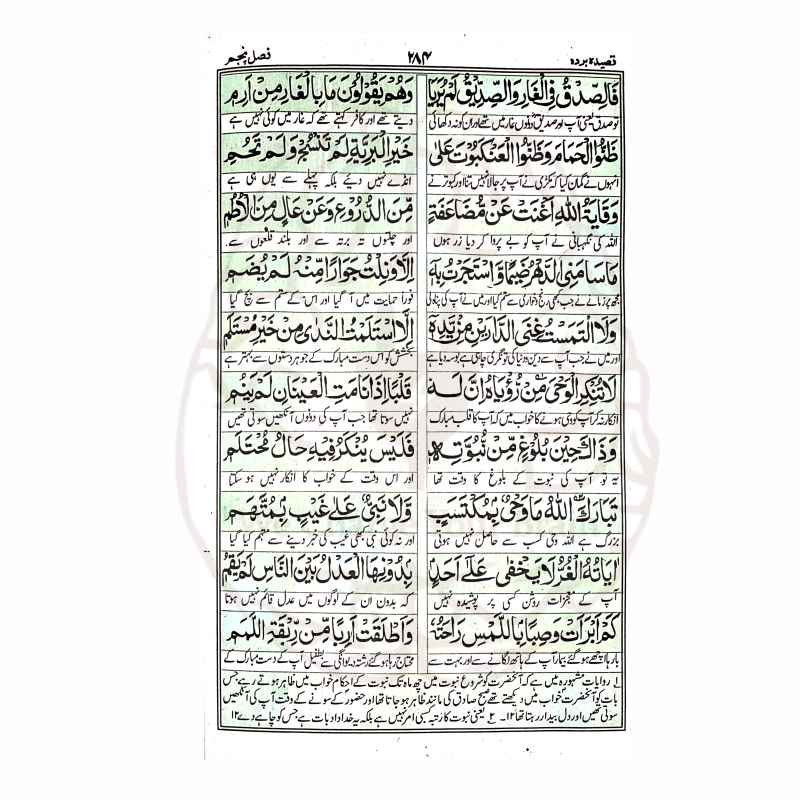 قصیدہ بردہ ۲۸۴ فصل پنجم
فَالصِّدْقُ فِي الْغَارِ وَالصِّدِّيْقُ لَمْ يُرَيَا وَهُمْ يَقُوْلُوْنَ مَا بِالْغَارِ مِنْ اَرِمِ
تو صدق یعنی آپ اور صدیق دونوں غار میں تھے اور ان کو نہ دکھائی دیتے تھے اور کافر کہتے تھے کہ غار میں کوئی نہیں ہے
ظَنُّوا الْحَمَامَ وَظَنُّوا الْعَنْكَبُوْتَ عَلٰى خَيْرِ الْبَرِيَّةِ لَمْ تَنْسُجْ وَلَمْ تَحُمِ
انہوں نے گمان کیا کہ مکڑی نے آپ پر جالا نہیں تنا اور کبوتر نے انڈے نہیں دیئے بلکہ پہلے سے یوں ہی ہے
وِقَايَةُ اللهِ اَغْنَتْ عَنْ مُّضَاعَفَةٍ مِّنَ الدُّرُوْعِ وَعَنْ عَالٍ مِنَ الْاُطُمِ
اللہ کی نگہبانی نے آپ کو بے پروا کر دیا زر ہوں اور چلتوں تہ برتہ سے اور بلند قلعوں سے
مَا سَامَنِي الدَّهْرُ ضَيْمًا وَّاسْتَجَرْتُ بِهٖ اِلَّا وَنِلْتُ جِوَارًا مِّنْهُ لَمْ يُضَمِ
مجھ پر زمانے نے جب بھی رنج و خواری سے ستم کیا اور میں نے آپ کی پناہ لی فوراً حمایت میں آ گیا اور اس کے ستم سے بچ گیا
وَلَا الْتَمَسْتُ غِنَى الدَّارَيْنِ مِنْ يَّدِهٖ اِلَّا اسْتَلَمْتُ النَّدٰى مِنْ خَيْرِ مُسْتَلَمِ
اور میں نے جب آپ سے دین و دنیا کی تونگری چاہی ہے بوسہ دیا ہے بخشش کو اس دست مبارک کے جو ہر دستوں سے بہتر ہے
لَا تُنْكِرِ الْوَحْيَ مِنْ رُّؤْيَاهُ اِنَّ لَهٗ قَلْبًا اِذَا نَامَتِ الْعَيْنَانِ لَمْ يَنَمِ
انکار نہ کر آپ کو وحی ہونے کا خواب میں کہ آپ کا قلب مبارک نہیں سوتا تھا جب آپ کی دونوں آنکھیں سوتی تھیں
وَذَاكَ حِيْنَ بُلُوْغٍ مِّنْ نُّبُوَّتِهٖ فَلَيْسَ يُنْكَرُ فِيْهِ حَالُ مُحْتَلِمِ
یہ تو آپ کی نبوت کے بلوغ کا وقت تھا اور اس وقت کے خواب کا انکار نہیں ہو سکتا
تَبَارَكَ اللهُ مَا وَحْيٌ بِمُكْتَسَبٍ وَّلَا نَبِيٌّ عَلٰى غَيْبٍ بِمُتَّهَمِ
بزرگ ہے اللہ وحی کسب سے حاصل نہیں ہوتی اور نہ کوئی نبی کبھی غیب کی خبر دینے سے متہم کیا گیا
اٰيَاتُهُ الْغُرُّ لَا يَخْفٰى عَلٰى اَحَدٍ بِدُوْنِهَا الْعَدْلُ بَيْنَ النَّاسِ لَمْ يَقُمِ
آپ کے معجزات روشن کسی پر پوشیدہ نہیں کہ بدون ان کے لوگوں میں عدل قائم نہیں ہوتا
كَمْ اَبْرَأَتْ وَصِبًا بِاللَّمْسِ رَاحَتُهٗ وَاَطْلَقَتْ اَرِبًا مِّنْ رِّبْقَةِ اللَّمَمِ
بارہا اچھے ہو گئے بیمار آپ کے ہاتھ لگانے سے اور بہت سے محتاج رہا ہو گئے رشتہ دیوانگی سے بطفیل آپ کے دست مبارک کے
۱ روایات مشہورہ میں ہے کہ آنحضرت کو شروع نبوت میں چھ ماہ تک نبوت کے احکام خواب میں ظاہر ہوتے رہے جس
بات کو آنحضرت خواب میں دیکھتے تھے صبح صادق کی مانند ظاہر ہو جاتا تھا اور حضور کے سونے کے وقت آپ کی آنکھیں
سوتی تھیں اور دل بیدار رہتا تھا ۱۲۔ ۲ یعنی نبوت کا رتبہ کسبی امر نہیں ہے بلکہ یہ خداداد بات ہے جس کو چاہے دے ۱۲